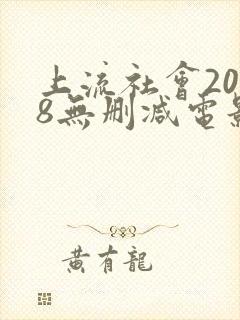 上流社會20
8無刪減電影
黃有龍